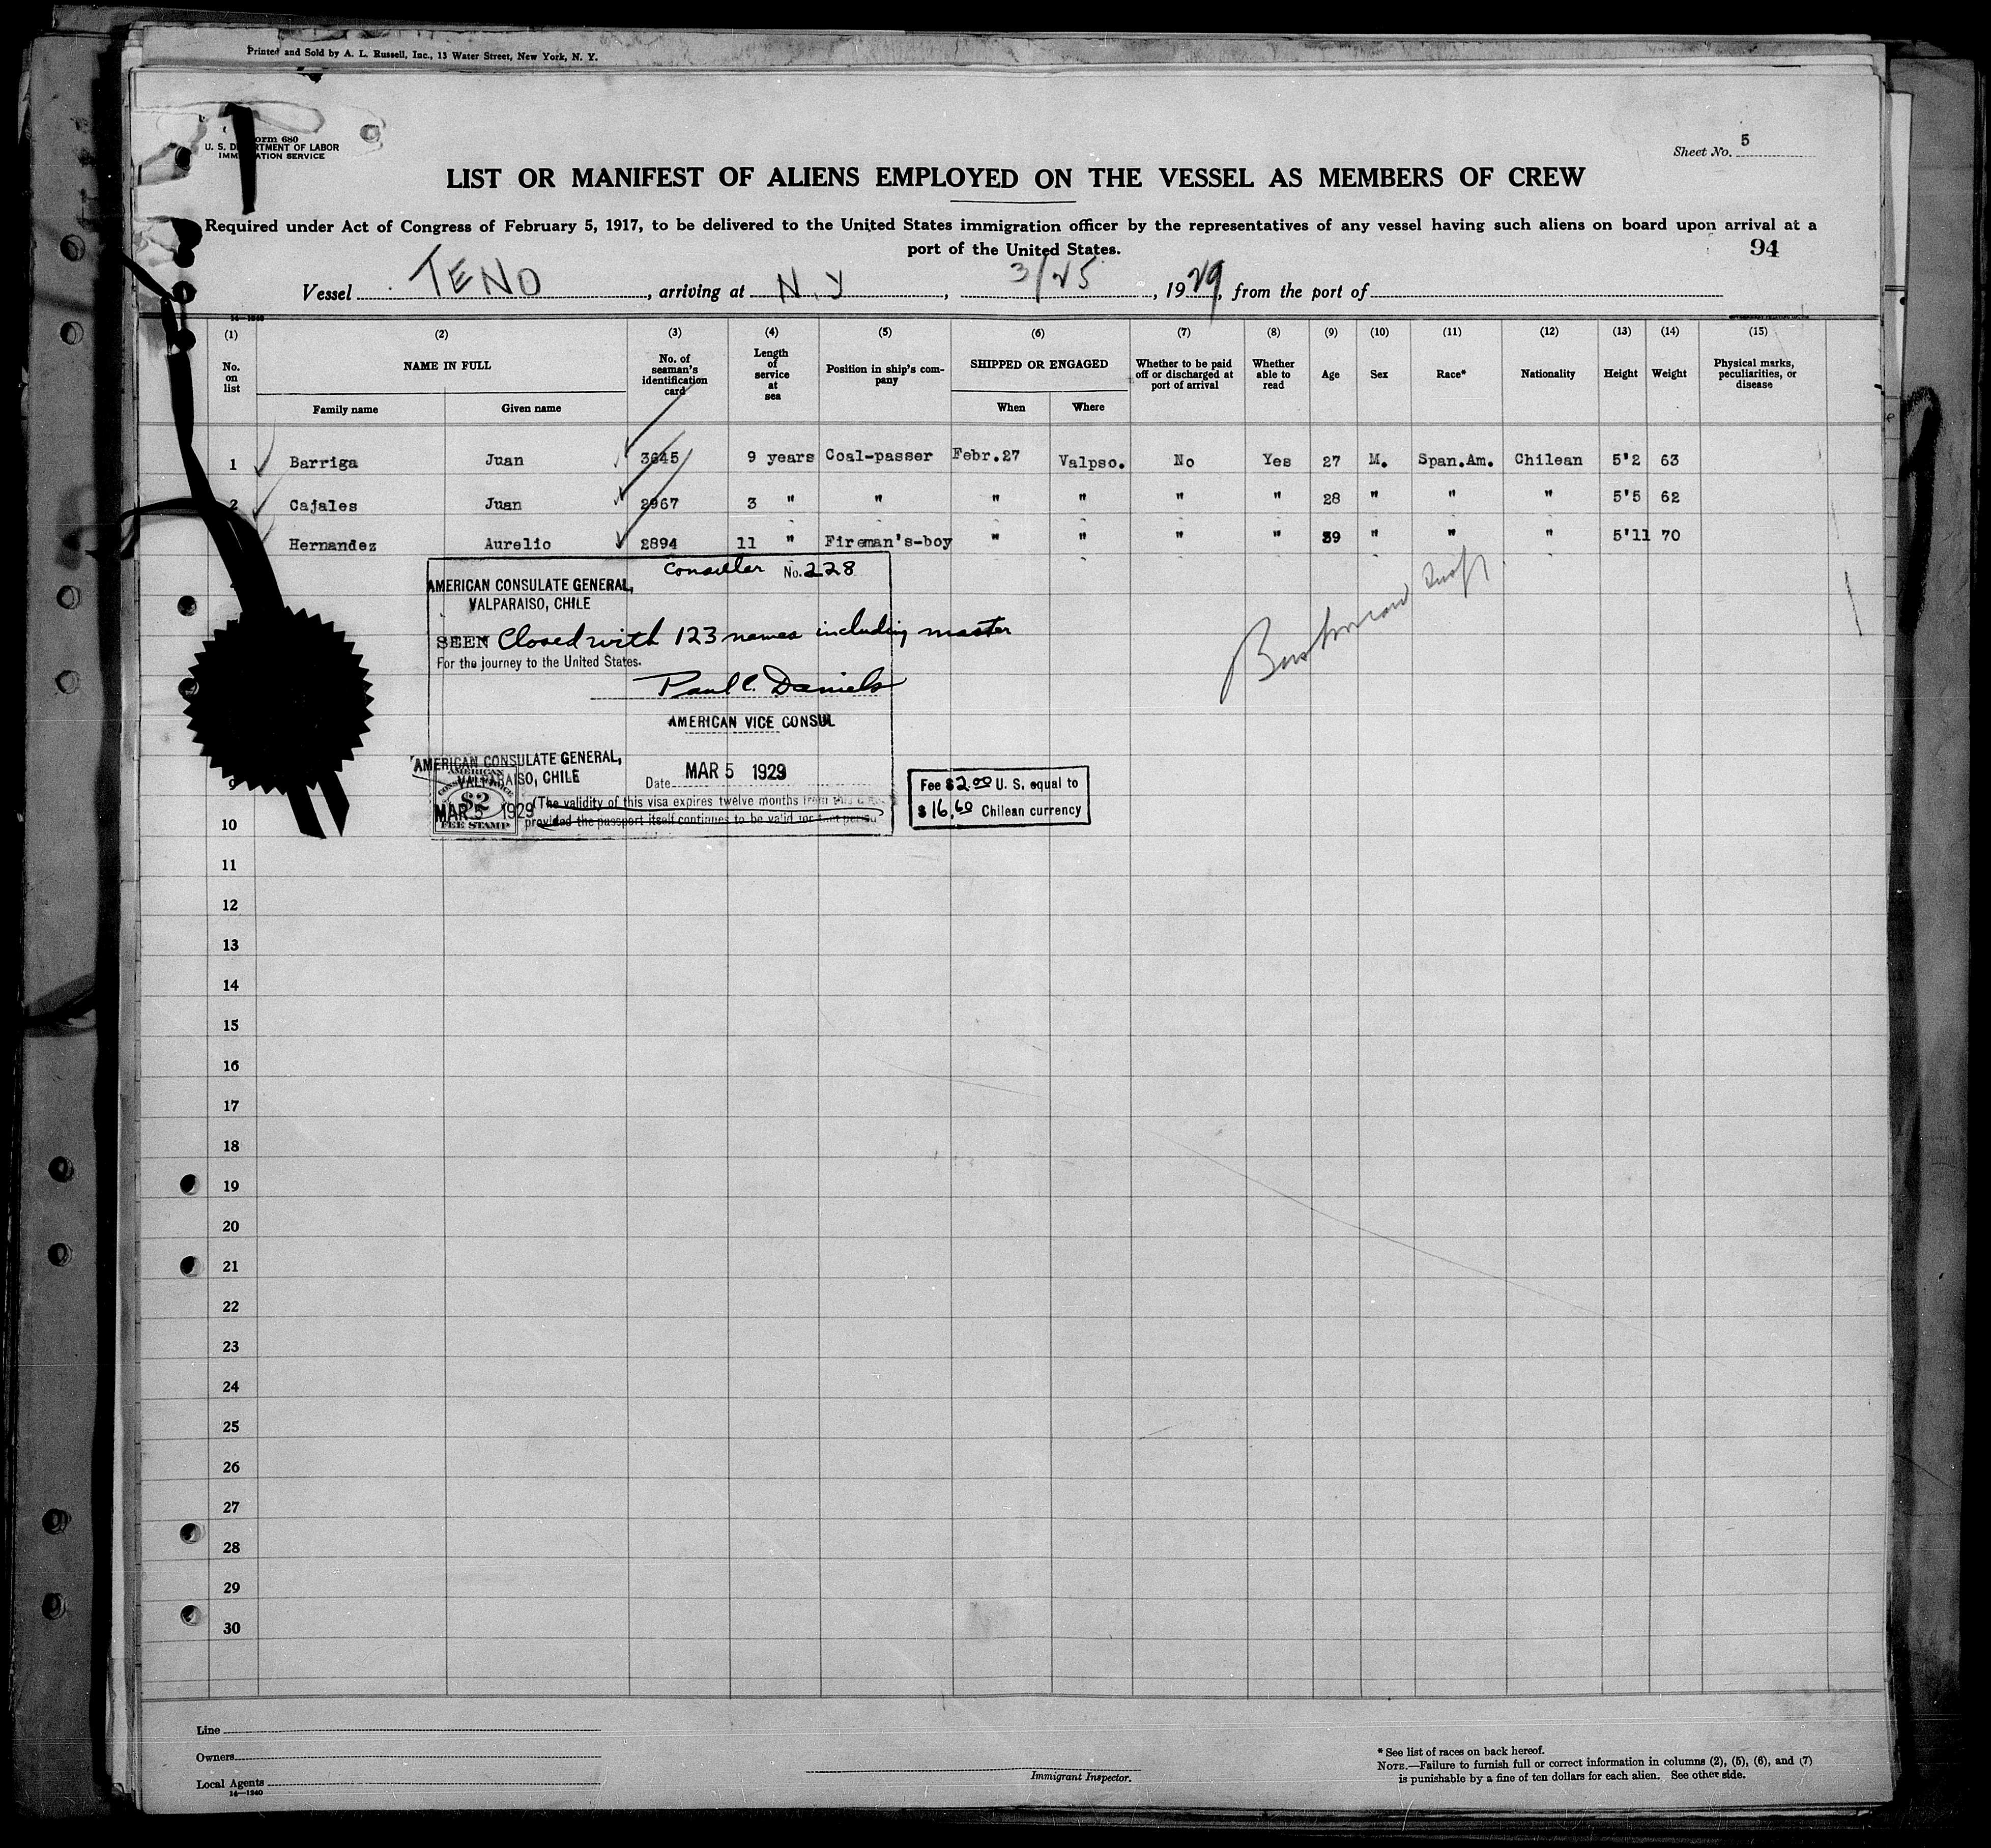 Printed and Sold by A. L. Russell, Inc., 13 Water Street, New York, N. Y.
orm 680
U. S. D RTMENT OF LABOR
IMM ATION SERVICE
Sheet No. 5
LIST OR MANIFEST OF ALIENS EMPLOYED ON THE VESSEL AS MEMBERS OF CREW
Required under Act of Congress of February 5, 1917, to be delivered to the United States immigration officer by the representatives of any vessel having such aliens on board upon arrival at a
port of the United States.
94
Vessel TENO, arriving at N.Y, 3/25, 1929, from the port of
(1) (2) (3) (4) (5) (6) (7) (8) (9) (10) (11) (12) (13) (14) (15)
No. on list NAME IN FULL No. of seaman's identification card Length of service at sea Position in ship's company SHIPPED OR ENGAGED Whether to be paid off or discharged at port of arrival Whether able to read Age Sex Race* Nationality Height Weight Physical marks, peculiarities, or disease
Family name Given name When Where
1 Barriga Juan 3645 9 years Coal-passer Febr.27 Valpso. No Yes 27 M. Span.Am. Chilean 5'2 63
2 Cajales Juan 2967 3 " " " " " " 28 " " " 5'5 62
Hernandez Aurelio 2894 11 " Fireman's-boy " " " " 39 " " " 5'11 70
No. 228
AMERICAN CONSULATE GENERAL,
VALPARAISO, CHILE
SEEN Closed with 123 names including master
For the journey to the United States.
Paul C. Daniels
AMERICAN VICE CONSUL
AMERICAN CONSULATE GENERAL,
VALPARAISO, CHILE
Date MAR 5 1929
MAR 5 1929
AMERICAN
$2
FEE STAMP
(The validity of this visa expires twelve months from this
provided the passport itself continues to be valid for that period
Fee $2.00 U. S. equal to
$16.60 Chilean currency
9
10
11
12
13
14
15
16
17
18
19
20
21
22
23
24
25
26
27
28
29
30
Line
Owners
Local Agents
14—1240
Immigrant Inspector.
* See list of races on back hereof.
NOTE.—Failure to furnish full or correct information in columns (2), (5), (6), and (7)
is punishable by a fine of ten dollars for each alien. See other side.